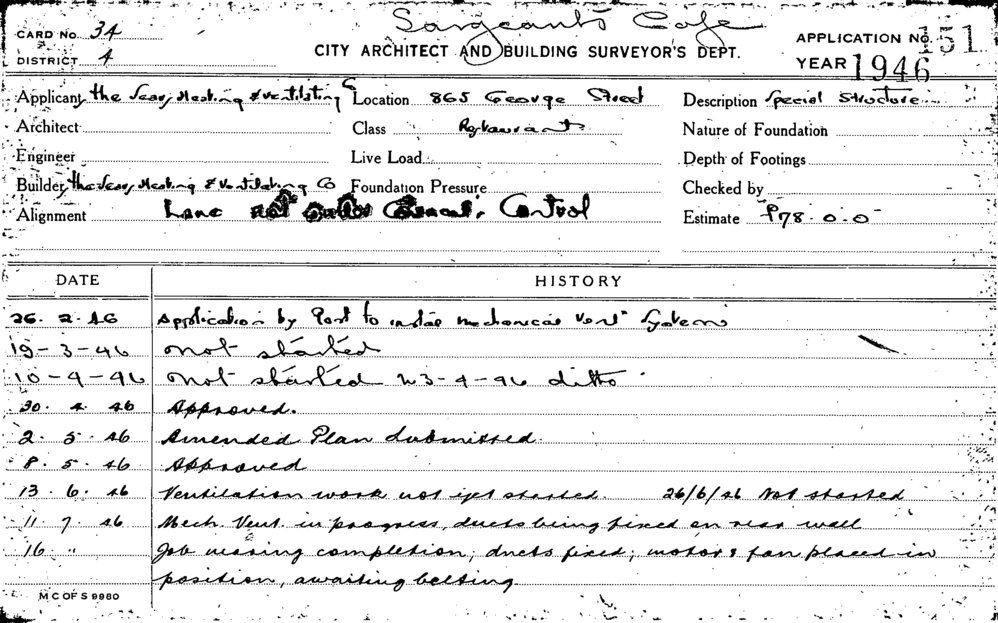 Sargeants Cafe
CARD No. 34
CITY ARCHITECT AND BUILDING SURVEYOR'S DEPT.
APPLICATION No. 151
DISTRICT 4
YEAR 1946
Applicant the Sear, Heating & Ventilating C Location 865 George Street Description Special Structure
Architect Class Restaurant Nature of Foundation
Engineer Live Load Depth of Footings
Builder the Sear, Heating & Ventilating Co Foundation Pressure Checked by
Alignment Lane not Control Estimate £78.0.0
DATE HISTORY
26. 2. 46 Application by Post to instal mechanical Vent" System
19-3-46 not started
10-4-46 not started 23-4-46 ditto
30. 4. 46 Approved.
2. 5. 46 Amended Plan submitted.
8. 5. 46 Approved
13. 6. 46 Ventilation work not yet started. 26/6/46 Not started
11. 7. 46 Mech. Vent. in progress, ducts being fixed on rear wall
16 " Job nearing completion, ducts fixed, motor & fan placed in
position, awaiting belting.
M C OF S 9980